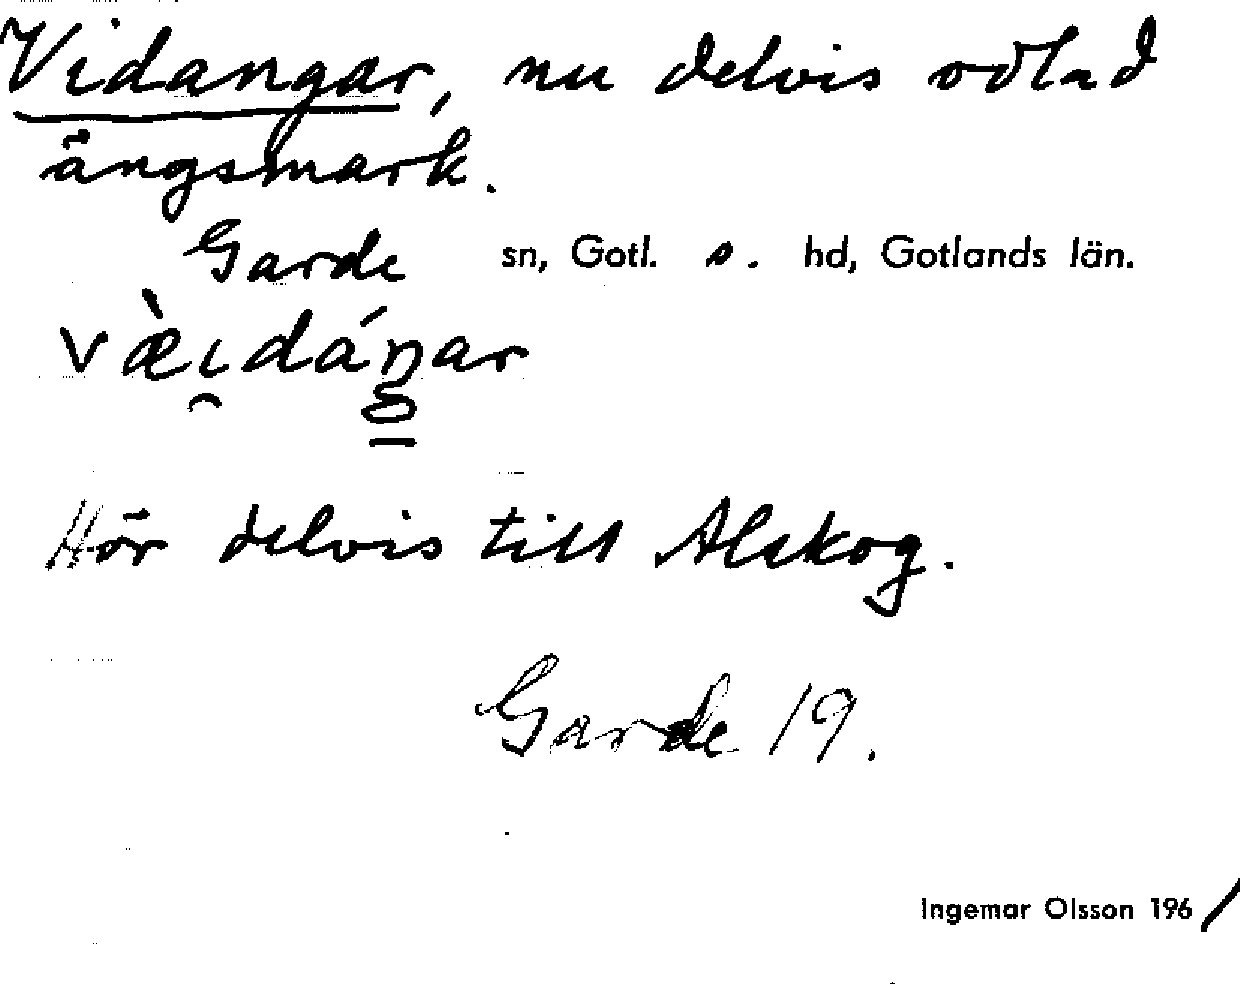 Vidangar, nu delvis odlad
ängsmark.
Garde sn, Gotl. s. hd, Gotlands län.
væ̀ɩdáŋar
Hör delvis till Alskog.
Garde 19.
Ingemar Olsson 1961